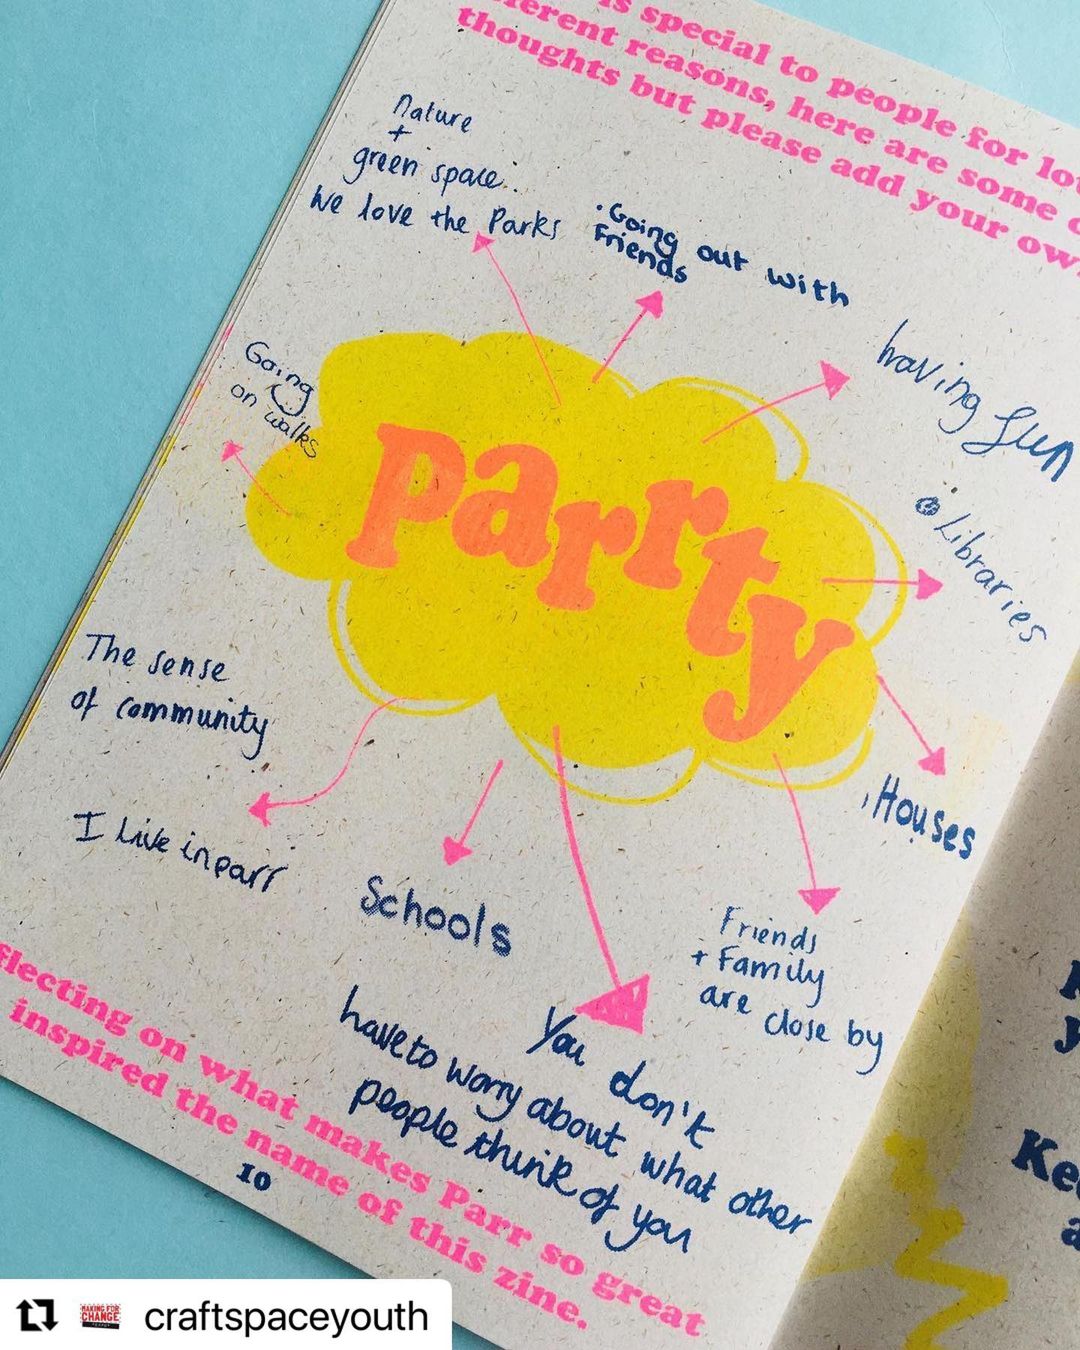 is special to people for
ferent reasons, here are some
thoughts but please add your
nature
+
green space..
We love the Parks
. Going out with
Friends
having fun
Libraries
Going
on walks
Parrty
The sense
of community
. Houses
I Live in parr
Schools
Friends
+ Family
are close by
You don't
have to worry about what other
people think of you
flecting on what makes Parr so great
inspired the name of this zine.
10
MAKING FOR
CHANGE
craftspaceyouth